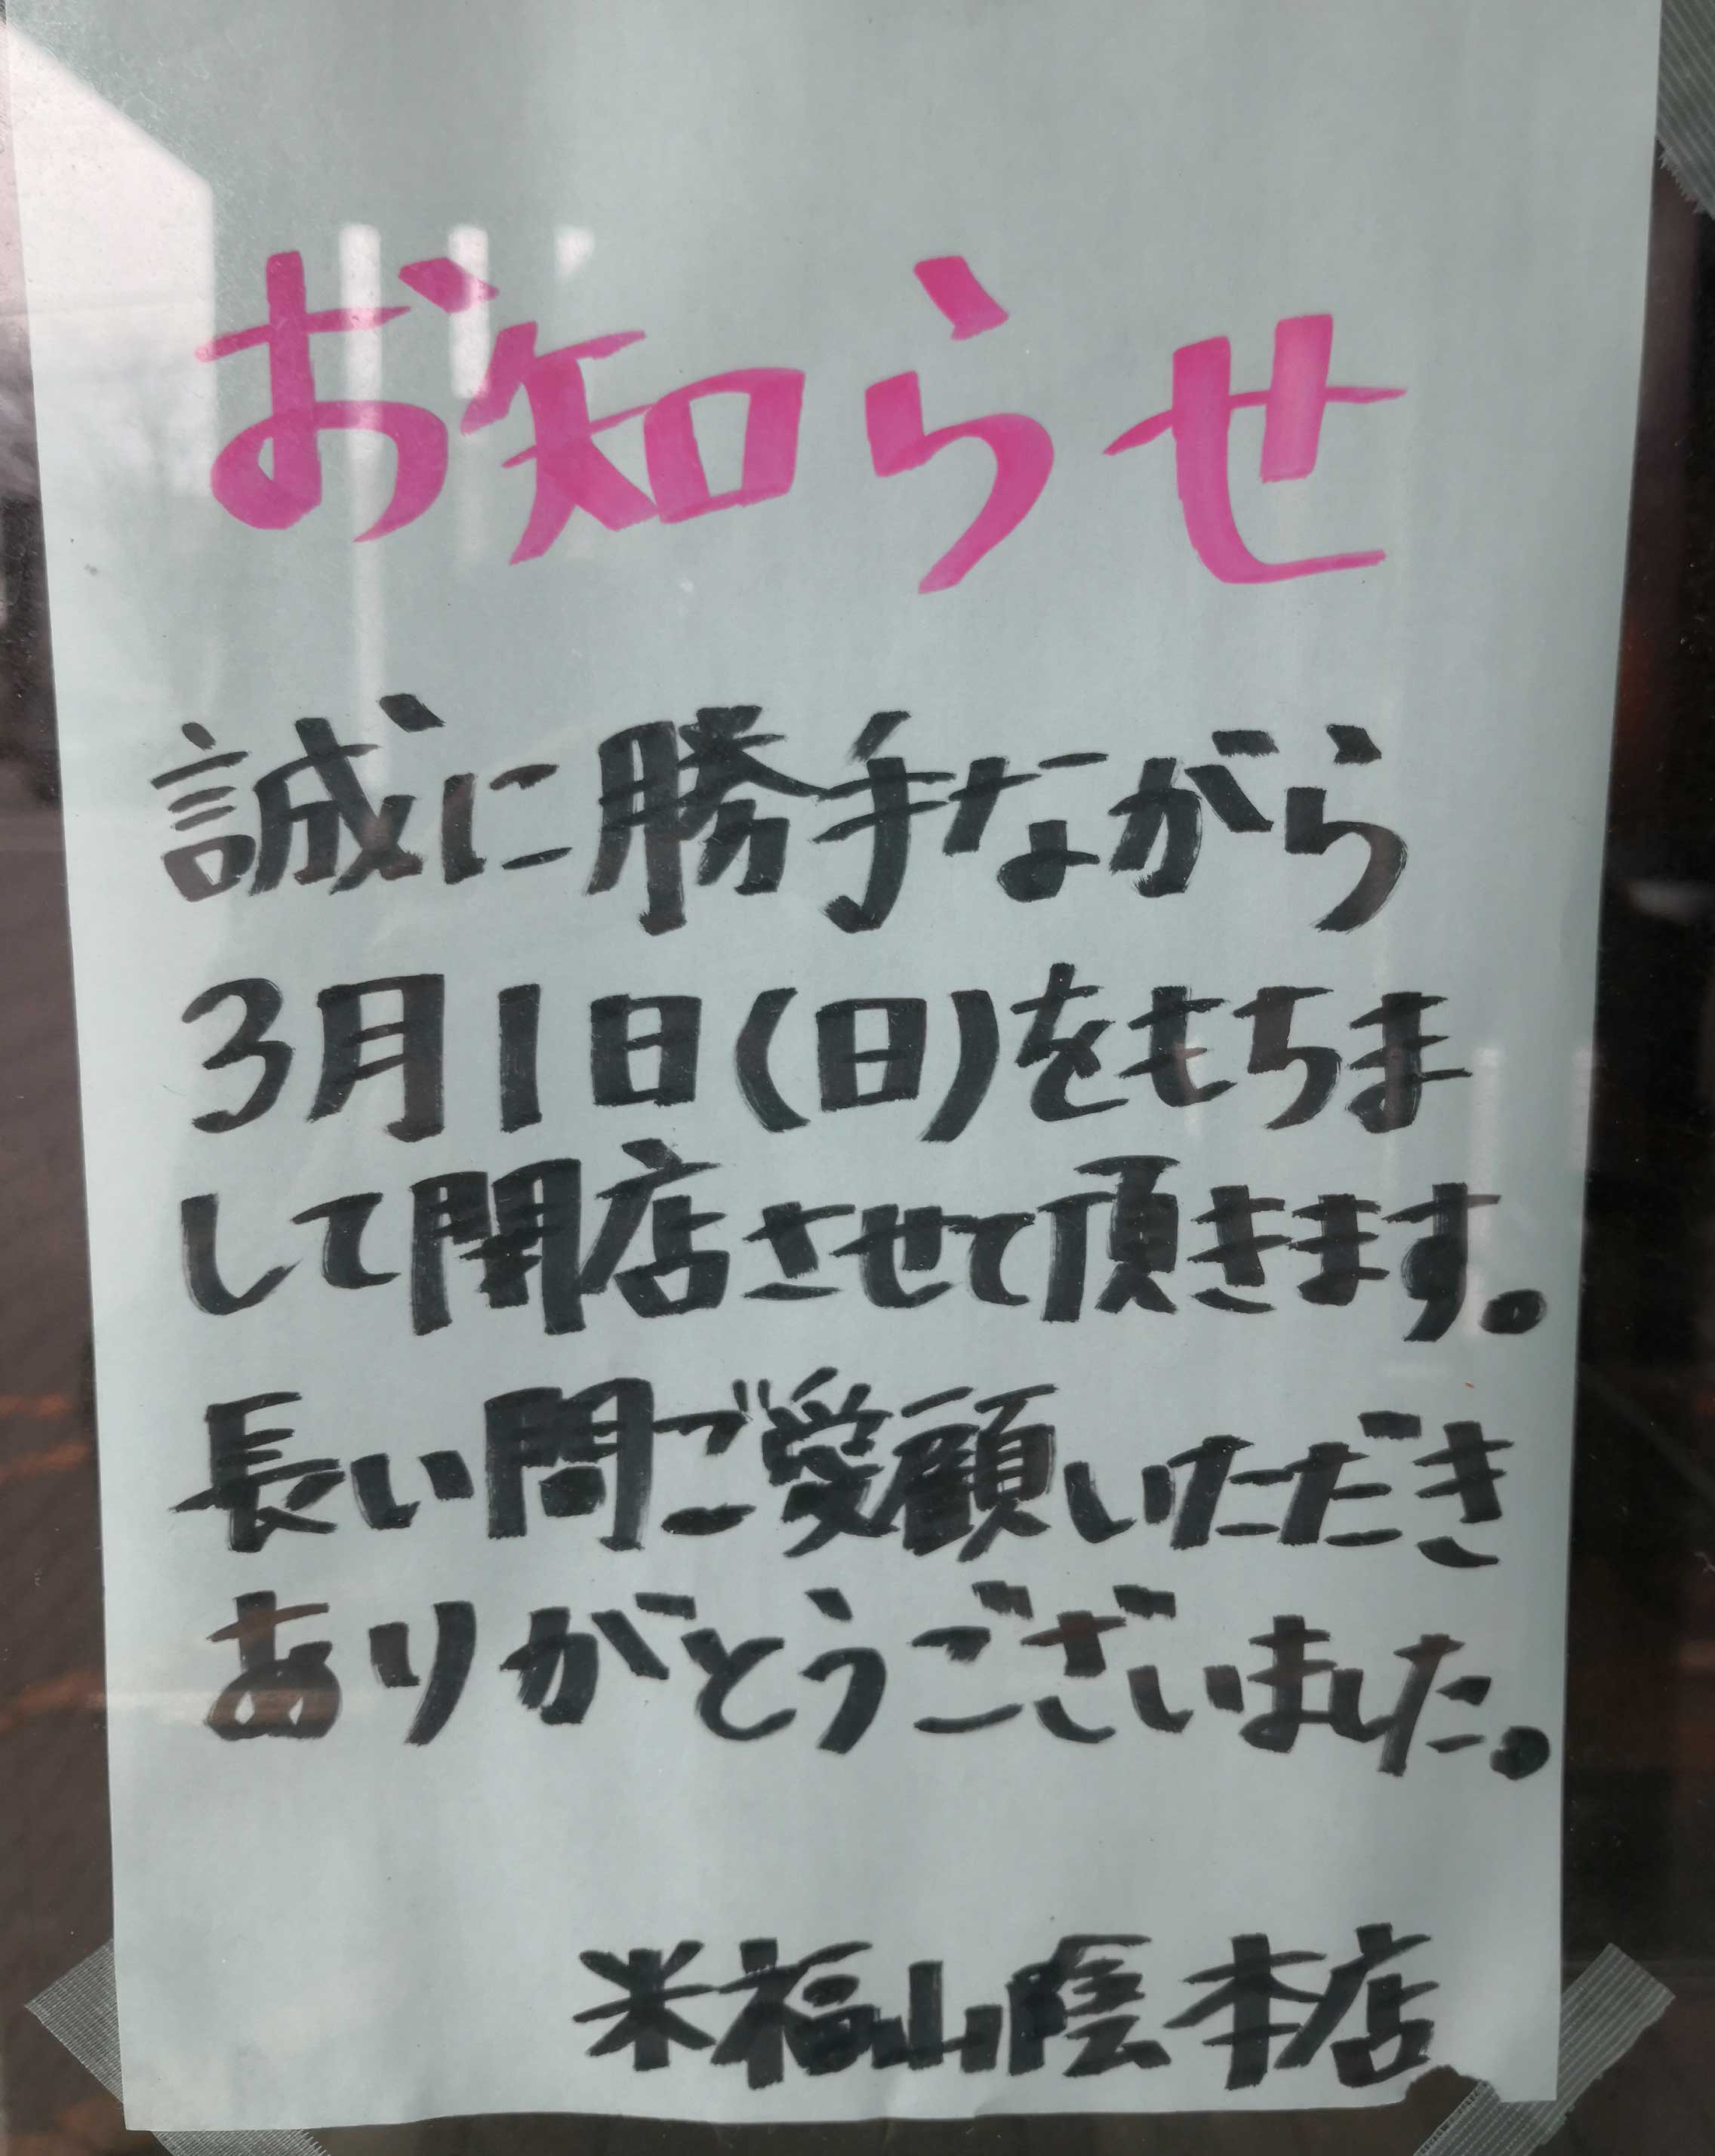 お知らせ
誠に勝手ながら
3月1日(日)をもちま
して閉店させて頂きます。
長い間ご愛顧いただき
ありがとうございました。
米福山陰本店